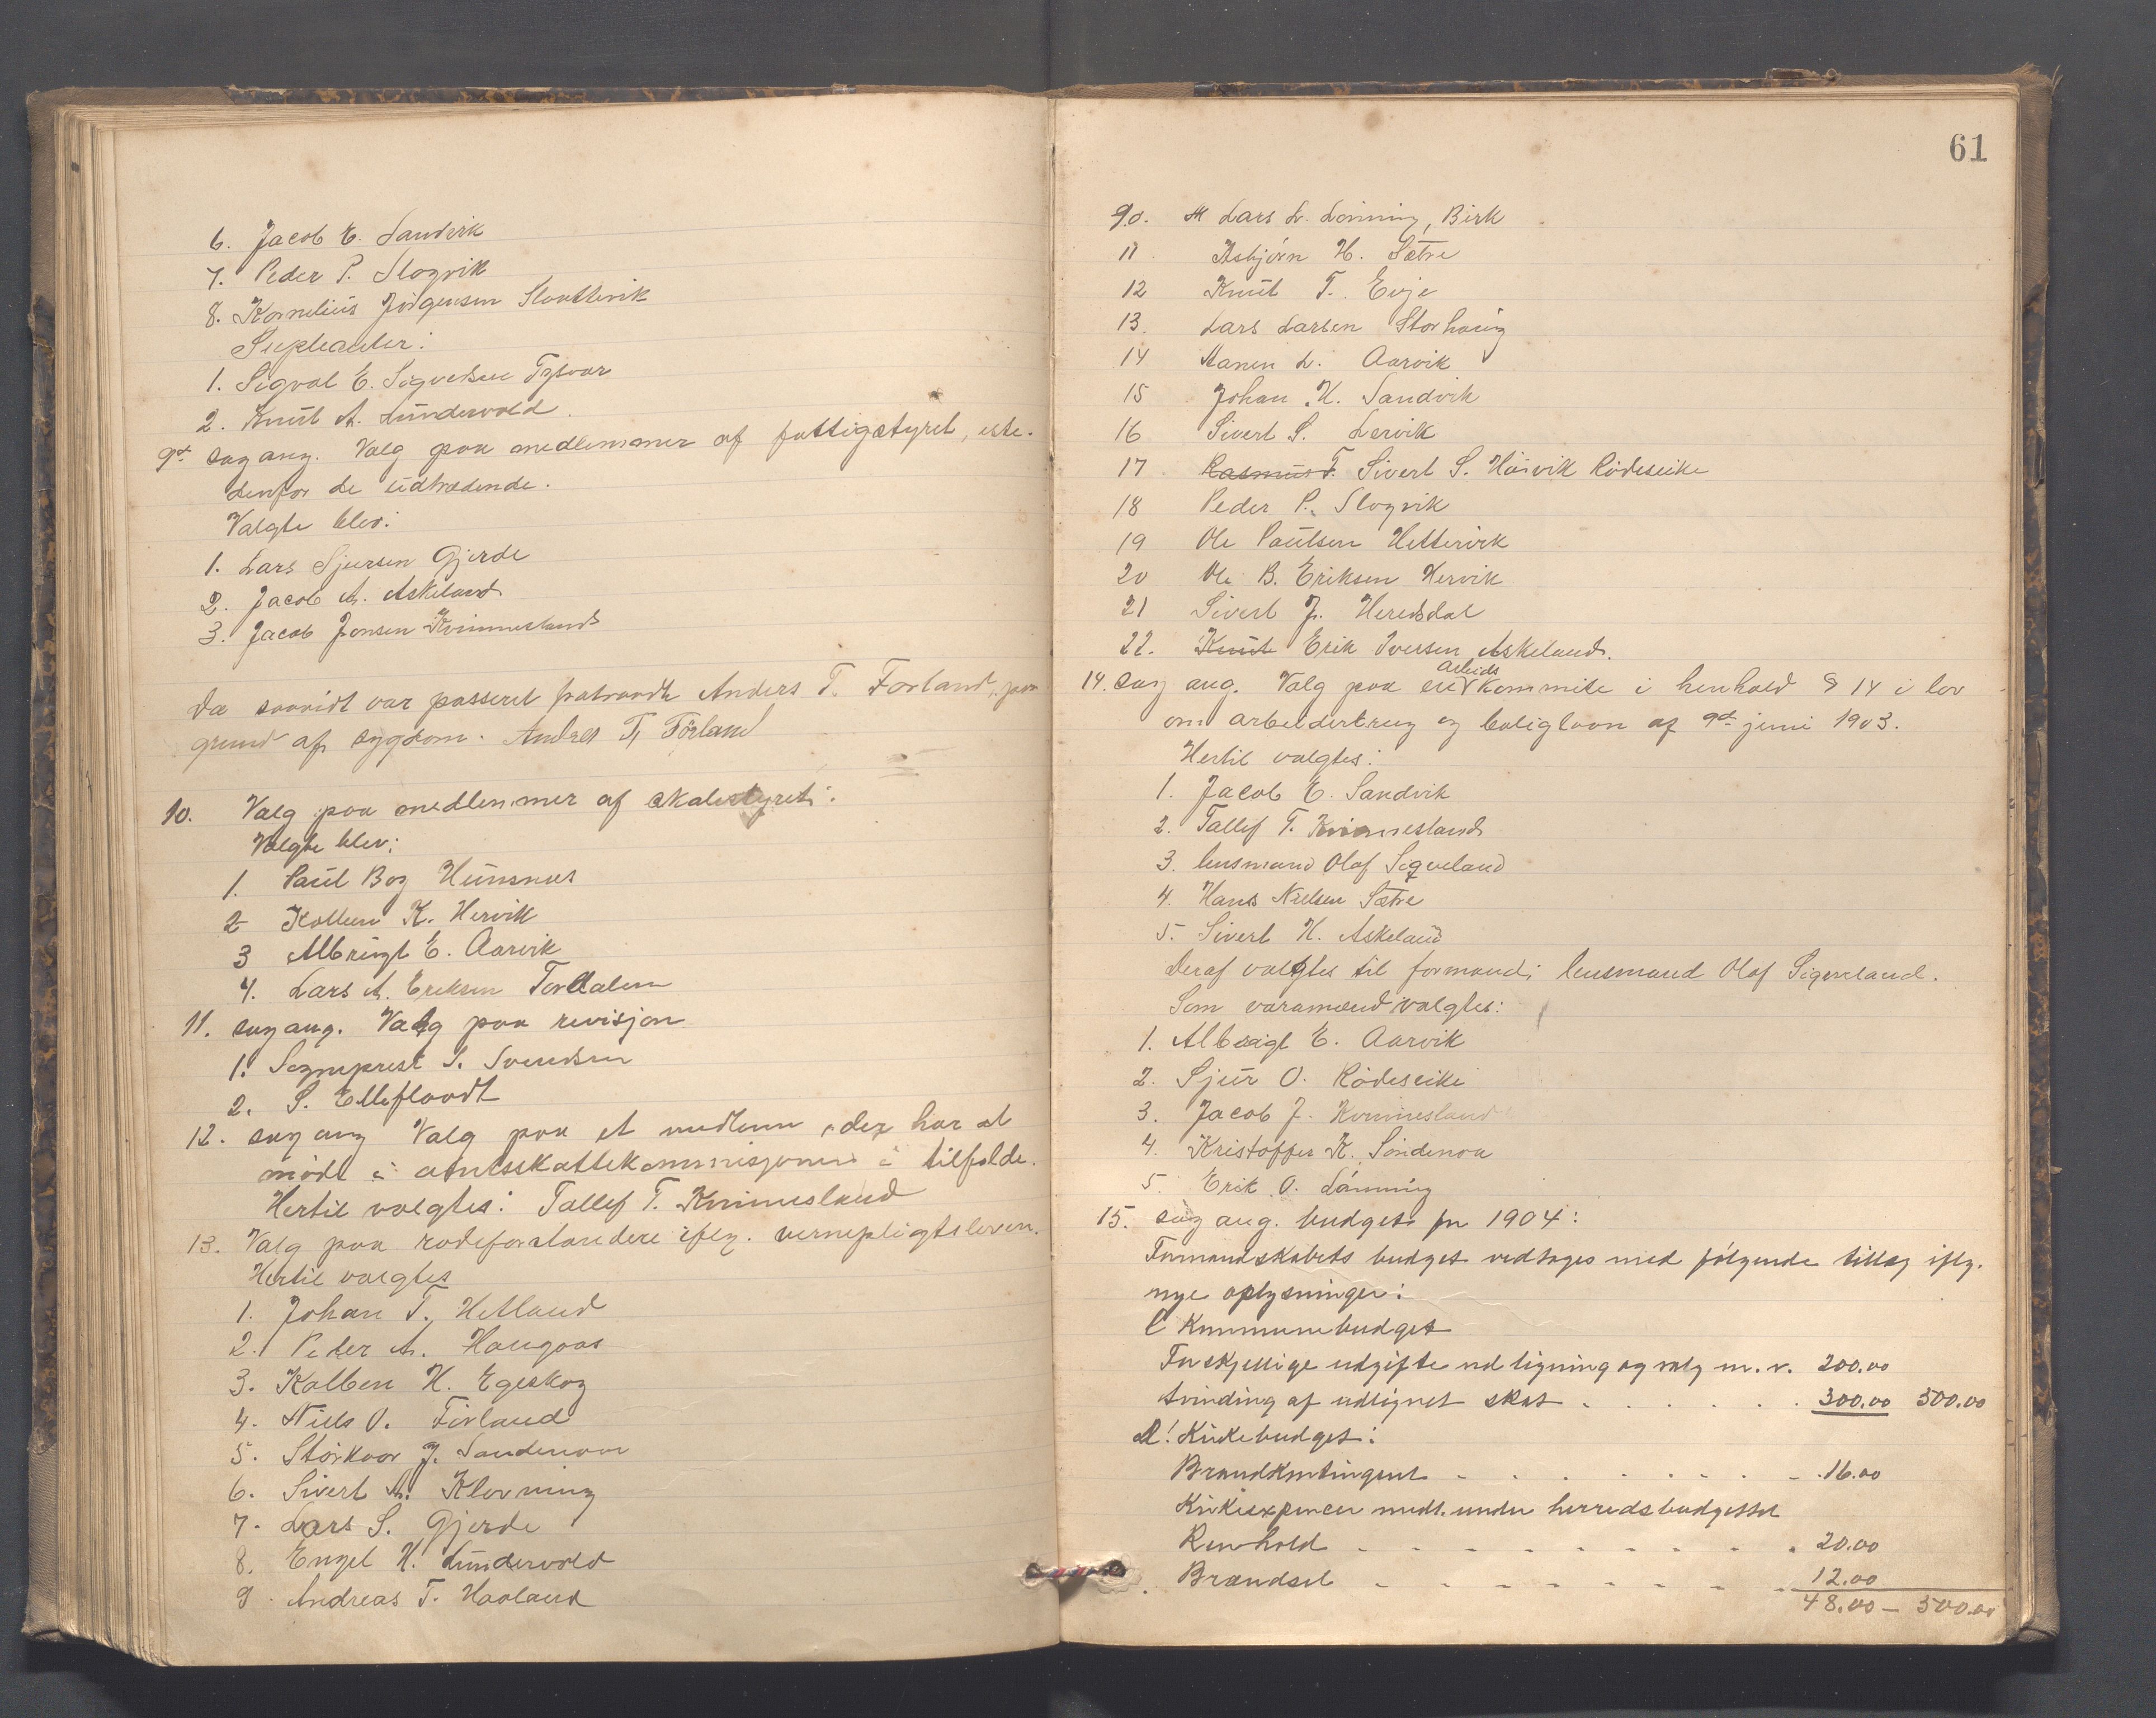 6. Jacob E. Sandvik
7. Peder P. Slogvik
8. Kornelius Jörgensen Slaattevik
Supleanter:
1. Sigval E. Sigvedsen Tysvær
2. Knut A. Lundervold.
9de sag ang. Valg paa medlemmer af fattigstyret, iste-
denfor de udtrædende.
Valgte blev:
1. Lars Sjursen Gjerde
2. Jacob A. Askeland
3. Jacob Jonsen Kvinnesland
Da saavidt var passeret fratraadte Anders T. Forland, paa
grund af sygdom. Andres T. Förland
10. Valg paa medlemmer af skolestyret:
Valgte blev:
1. Paul Bog Hunsnes
2 Kolben K. Hervik
3 Albrigt E. Aarvik
4. Lars A. Eriksen Tordalen
11. sag ang. Valg paa revisjon
1. Sogneprest S. Svendsen
2. S. Elleflaadt
12. sag ang Valg paa et medlem, der har at
möde i amtsskattekommisjonen i tilfælde.
Hertil valgtes: Tallef T. Kvinnesland
13. Valg paa rodeforstandere iflg. vernepligtsloven.
Hertil valgtes
1. Johan T. Hetland
2. Peder A. Haugaas
3. Kolben H. Egeskog
4. Nils O. Förland
5. Störkaar J. Sandenaa
6. Sivert A. Klovning
7. Lars S. Gjerde
8. Engel H. Lundervold
9. Andreas T. Haaland
61
90. Lars L. Lönning, Birk
11 Asbjörn H. Sætre
12 Knut T. Evje
13. Lars Larsen Storhaug
14 Hanen L. Aarvik
15 Johan H. Sandvik
16 Sivert S. Lervik
17 Rasmus T. Sivert S. Häsvik Rödeseike
18 Peder P. Slogvik
19 Ole Paulsen Hettervik
20 Ole B. Eriksen Hervik
21 Sivert J. Heredsdal
22. Knut Erik Iversen Askeland.
14. sag ang. Valg paa en arbeids kommite i henhold § 14 i lov
om arbeiderbrug og boliglaan af 9de juni 1903.
Hertil valgtes:
1. Jacob E. Sandvik
2. Tallef T. Kvinnesland
3. lensmand Olaf Sigveland
4. Hans Nielsen Sætre
5. Sivert H. Askeland
Deraf valgtes til formand; lensmand Olaf Sigveland.
Som varamænd valgtes:
1. Albrigt E. Aarvik
2. Sjur O. Rödeseike
3. Jacob J. Kvinnesland
4. Kristoffer K. Söndenaa
5. Erik O. Lönning
15. sag ang. budget for 1904:
Formandskabets budget vedtages med fölgende tillæg iflg.
nye oplysninger:
C Kommunebudget
Forskjellige udgifte ved ligning og valg m.v. 200.00
Svinding af udlignet skat . . . . . . 300.00 500.00
D! Kirkebudget:
Brandkontingent - . . . . . . . - 16.00
Kirkeexpencer medt. under herredsbudgettet
Renhold - - - - - - - - . 20.00
Brændsel - - - - - - - - 12.00
48.00 - 500.00